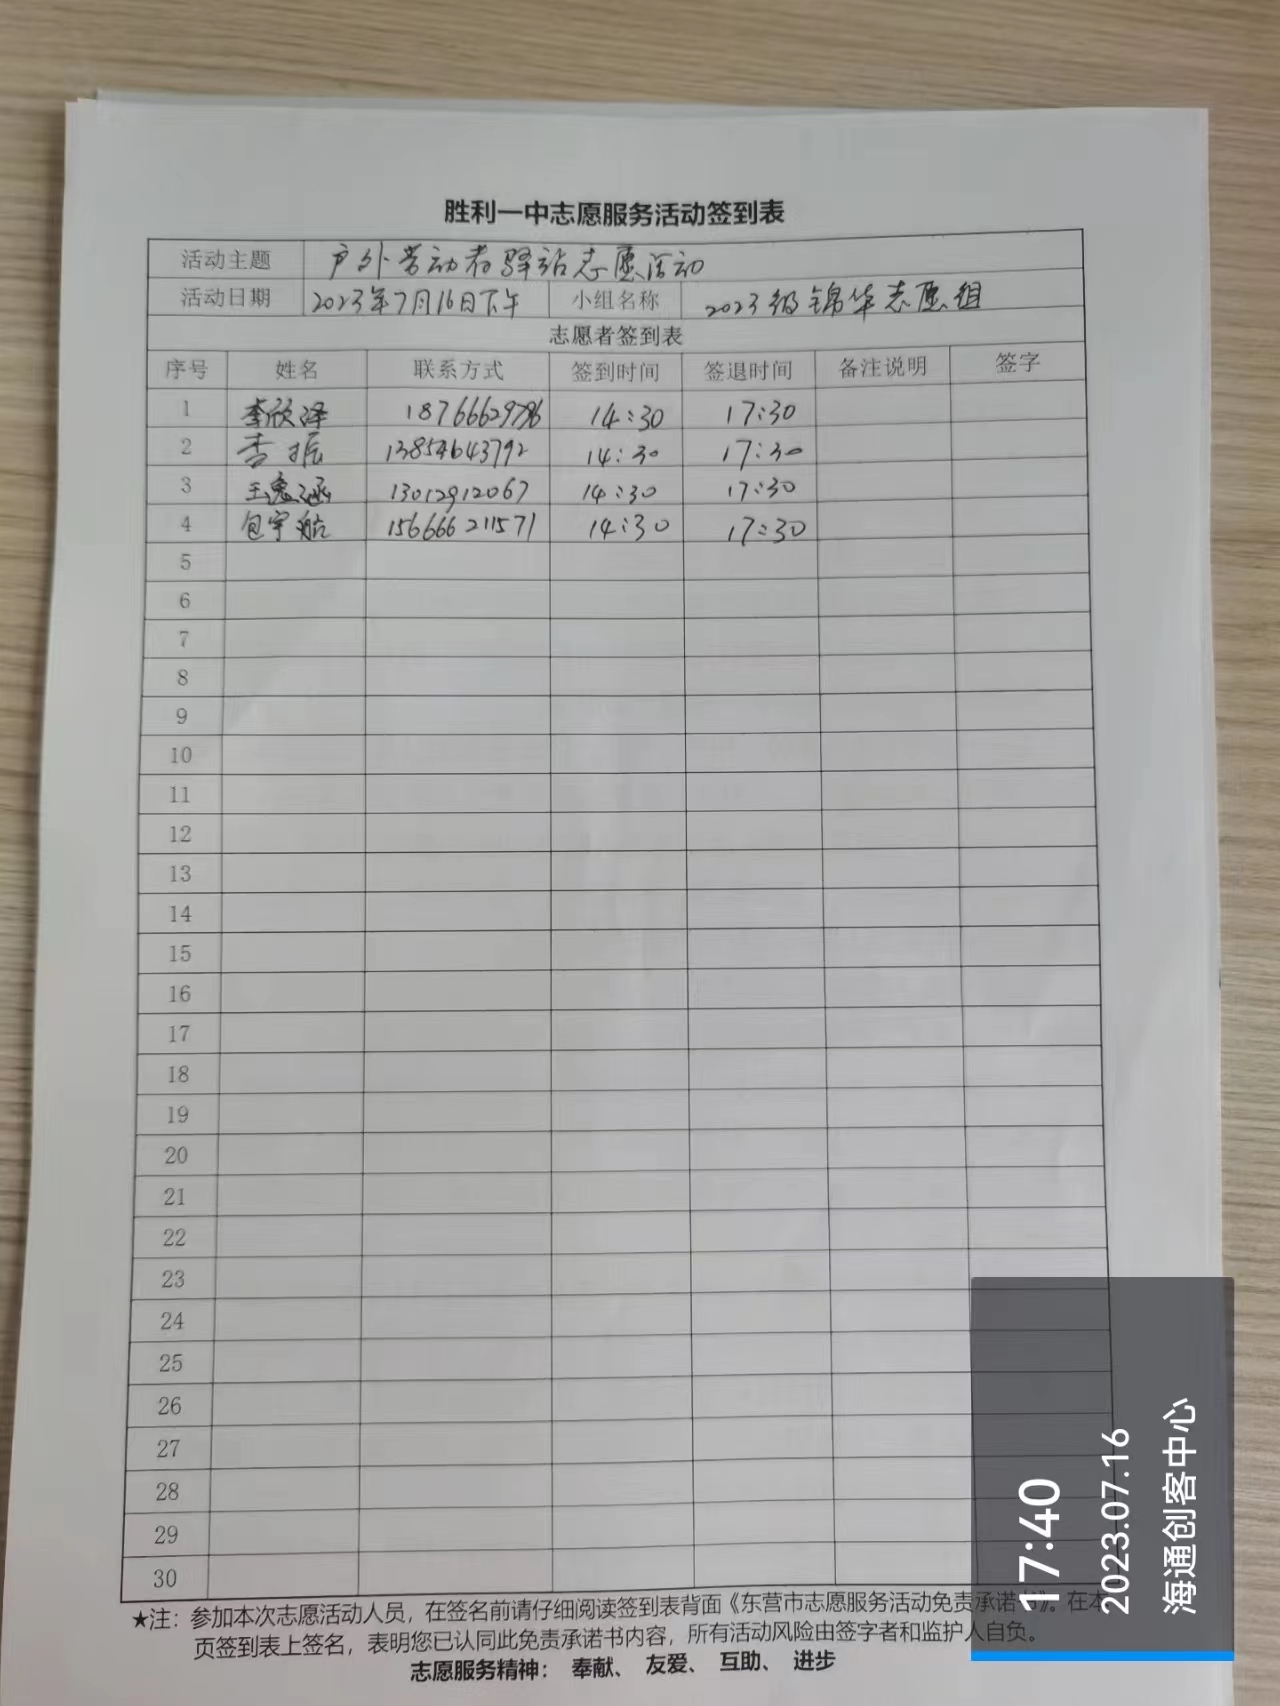 胜利一中志愿服务活动签到表
活动主题 户外劳动者驿站志愿活动
活动日期 2023年7月16日下午 小组名称 2023级锦华志愿组
志愿者签到表
序号 姓名 联系方式 签到时间 签退时间 备注说明 签字
1 李欣泽 18766629786 14:30 17:30
2 李振 13854643792 14:30 17:30
3 王逸涵 13012912067 14:30 17:30
4 包宇航 156666211571 14:30 17:30
5
6
7
8
9
10
11
12
13
14
15
16
17
18
19
20
21
22
23
24
25
26
27
28
29
30
★注：参加本次志愿活动人员，在签名前请仔细阅读签到表背面《东营市志愿服务活动免责承诺书》。在本
页签到表上签名，表明您已认同此免责承诺书内容，所有活动风险由签字者和监护人自负。
志愿服务精神： 奉献、 友爱、 互助、 进步
17:40
2023.07.16
海通创客中心